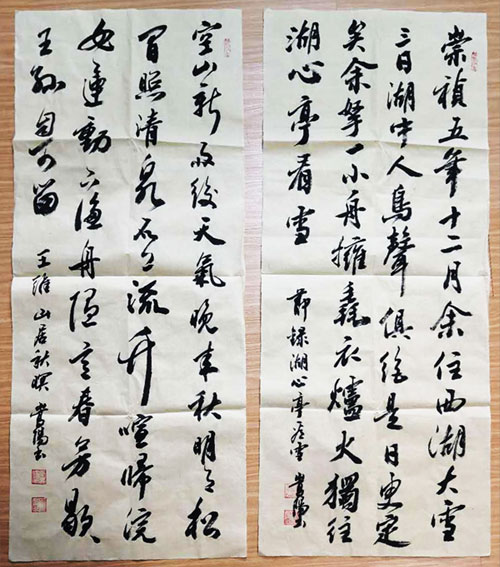 崇禎五年十二月余住西湖大雪
三日湖中人鳥聲俱絕是日更定
矣余拏一小舟擁毳衣爐火獨往
湖心亭看雪
節錄湖心亭看雪
空山新雨後天氣晚來秋明月松
間照清泉石上流竹喧歸浣
女蓮動下漁舟隨意春芳歇
王孫自可留
王維山居秋暝